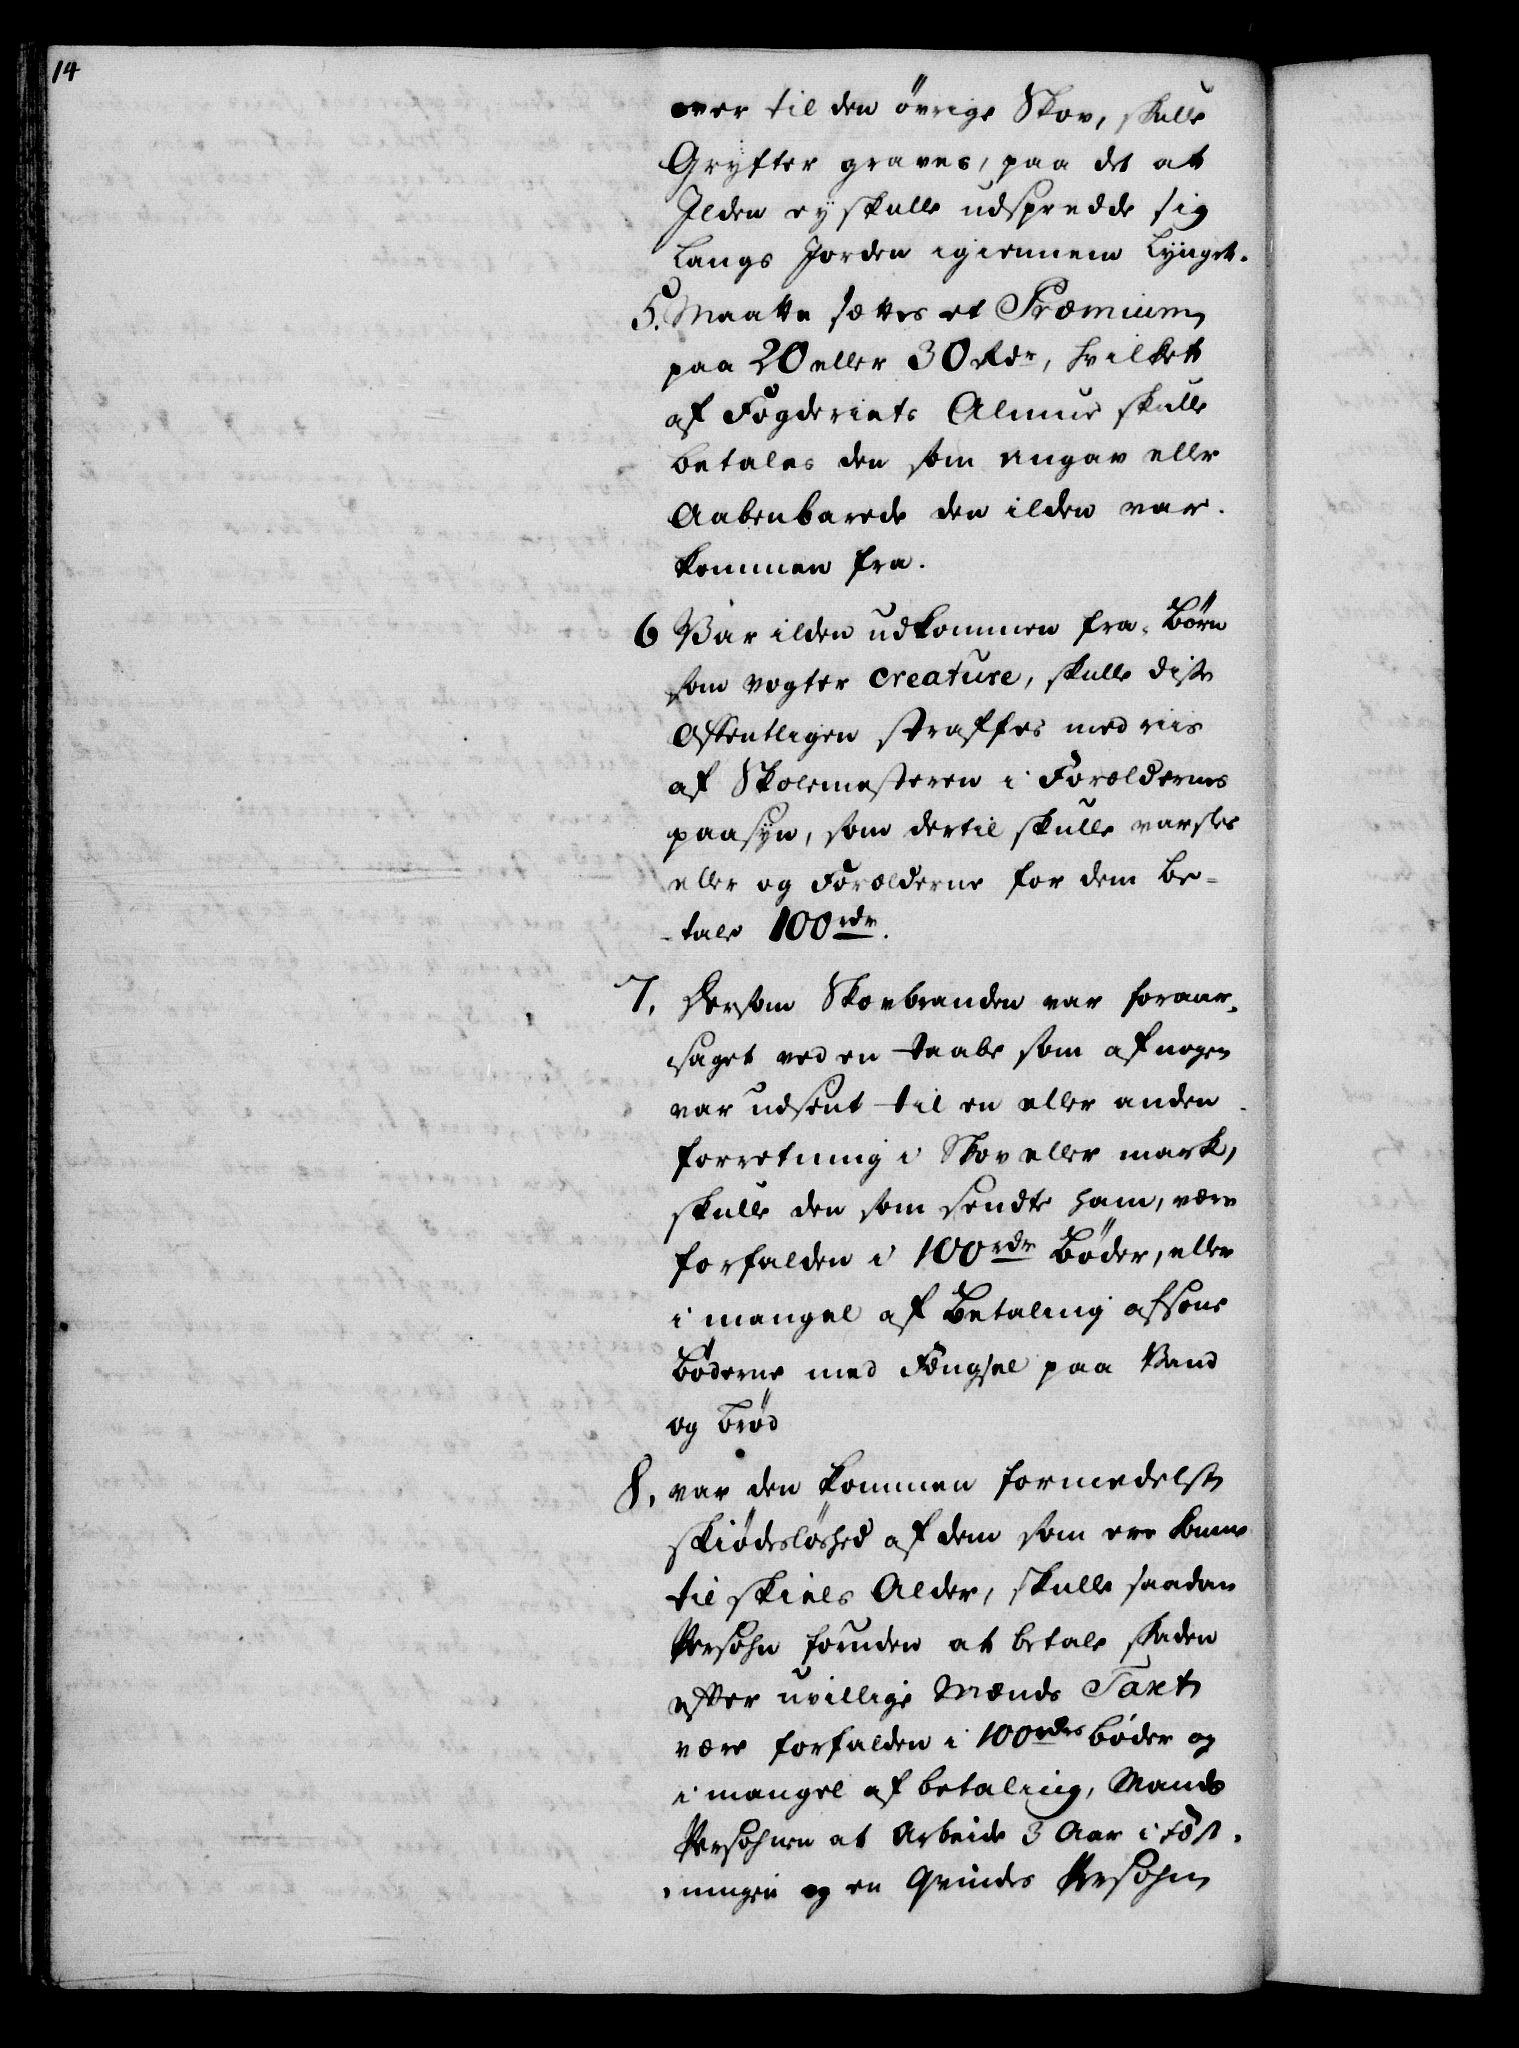 14
over til den övrige Skov, skulle
Gryfter graves, paa det at
Jlden eÿ skulle udspredde sig
langs Jorden igiennem Lÿnget.
5. Maatte sættes et Præmium
paa 20 eller 30 Rdr, hvilket
af Fogderiets Almue skulle
betales den som angav eller
Aabenbarede den ilden var
kommen fra.
6 Var ilden udkommen fra Börn
som vogter Creature, skulle disse
Offentligen straffes med riis
af Skolemesteren i Forældernes
paasÿn, som dertil skulle varsles
eller og Forælderne for dem be-
-tale 100 rdr.
7. Dersom Skovbranden var foraar-
saget ved en Taabe som af nogen
var udsent til en eller anden
forretning i Skov eller mark,
skulle den som sendte ham, være
forfalden i 100 rdr Böder, eller
i mangel af Betaling afsone
Böderne med Fængsel paa Vand
og Bröd
8. var den kommen formedelst
skiödeslöshed af dem som ere komne
til skiels Alder, skulle saadan
Persohn foruden at betale skaden
efter uvillige Mænds Taxt
være forfalden i 100 rdrs böder og
i mangel af betaling, Mands
Persohnen at Arbeide 3 Aar i Fæst-
ningen og en Qvindes Persohn